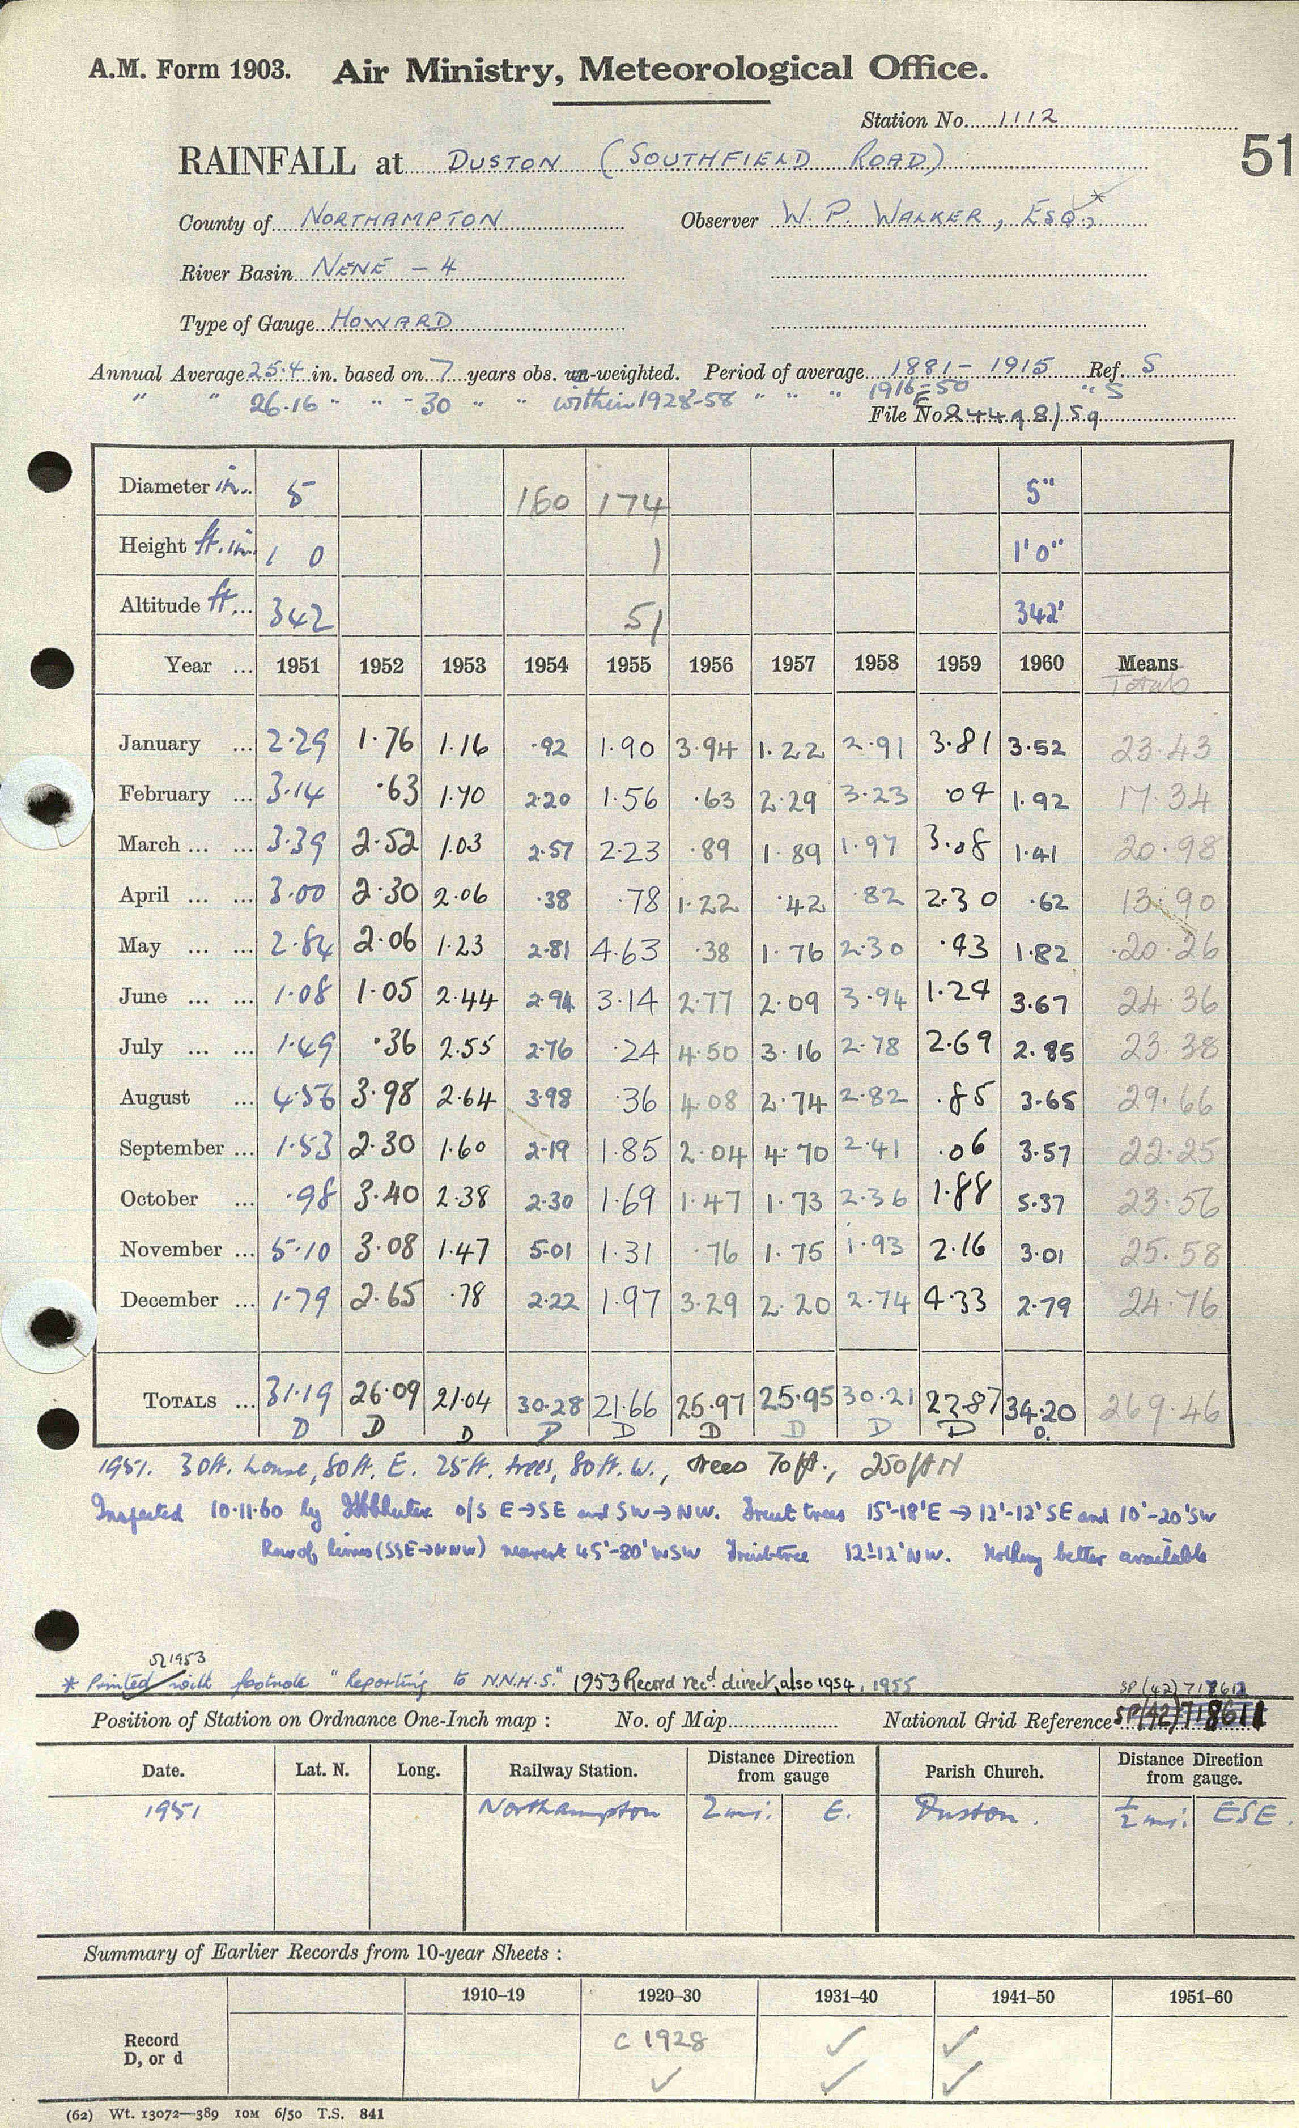 A.M. Form 1903. Air Ministry, Meteorological Office.
Station No. 1112
51
RAINFALL at DUSTON (SOUTHFIELD ROAD)
County of NORTHAMPTON Observer W. P. WALKER, ESQ., *
River Basin NENE - 4
Type of Gauge HOWARD
Annual Average 25.4 in. based on 7 years obs. un-weighted. Period of average 1881 - 1915 Ref. S
" " 26.16 " " - 30 " " within 1928-58 " " " 1916-50 " S
File No 24498/59
Diameter in. 5 160 174 5"
Height ft. in. 1 0 1 1'0"
Altitude ft. 342 51 342'
Year ... 1951 1952 1953 1954 1955 1956 1957 1958 1959 1960 Means
Totals
January ... 2.29 1.76 1.16 .92 1.90 3.94 1.22 2.91 3.81 3.52 23.43
February ... 3.14 .63 1.70 2.20 1.56 .63 2.29 3.23 .04 1.92 17.34
March ... ... 3.39 2.52 1.03 2.57 2.23 .89 1.89 1.97 3.08 1.41 20.98
April ... ... 3.00 2.30 2.06 .38 .78 1.22 .42 .82 2.30 .62 13.90
May ... ... 2.84 2.06 1.23 2.81 4.63 .38 1.76 2.30 .43 1.82 20.26
June ... ... 1.08 1.05 2.44 2.94 3.14 2.77 2.09 3.94 1.24 3.67 24.36
July ... ... 1.49 .36 2.55 2.76 .24 4.50 3.16 2.78 2.69 2.85 23.38
August ... 4.56 3.98 2.64 3.98 .36 4.08 2.74 2.82 .85 3.65 29.66
September ... 1.53 2.30 1.60 2.19 1.85 2.04 4.70 2.41 .06 3.57 22.25
October ... .98 3.40 2.38 2.30 1.69 1.47 1.73 2.36 1.88 5.37 23.56
November ... 5.10 3.08 1.47 5.01 1.31 .76 1.75 1.93 2.16 3.01 25.58
December ... 1.79 2.65 .78 2.22 1.97 3.29 2.20 2.74 4.33 2.79 24.76
TOTALS ... 31.19 26.09 21.04 30.28 21.66 25.97 25.95 30.21 22.87 34.20 269.46
D D D D D D D D D D.
1951. 30ft. house, 80ft. E. 25ft. trees, 80ft. W., trees 70ft., 250ft N
Inspected 10.11.60 by o/s E→SE and SW→NW. Fruit trees 15'-18'E → 12'-12'SE and 10'-20'SW
Row of limes (SSE→NNW) nearest 45'-80'WSW Fruit tree 12'-12'NW. Nothing better available
1953
* Printed with footnote "Reporting to N.N.H.S." 1953 Record recd. direct, also 1954, 1955
SP (42) 718612
Position of Station on Ordnance One-Inch map : No. of Map National Grid Reference SP(42)718611
Date. Lat. N. Long. Railway Station. Distance from gauge Direction Parish Church. Distance Direction from gauge.
1951 Northampton 2 mi. E. Duston. ½ mi. ESE.
Summary of Earlier Records from 10-year Sheets :
1910-19 1920-30 1931-40 1941-50 1951-60
Record D, or d c 1928 ✓ ✓
✓ ✓ ✓
(62) Wt. 13072—389 10M 6/50 T.S. 841